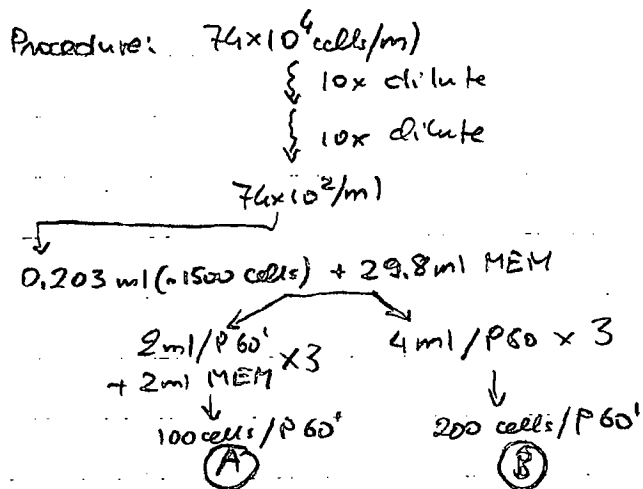 Procedure: 74×10⁴ cells/ml
10x dilute
10x dilute
74×10²/ml
0.203 ml (~1500 cells) + 29.8 ml MEM
2 ml/P60' ×3 4 ml/P60 × 3
+ 2 ml MEM
100 cells/P60' 200 cells/P60'
A B